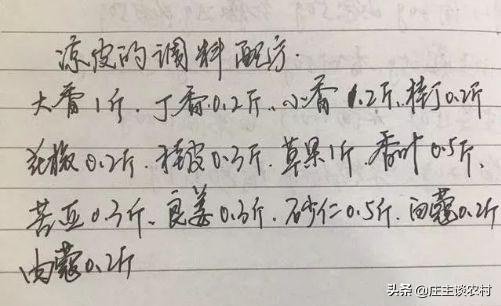 凉皮的调料配方.
大香1斤. 丁香0.2斤. 小香1.2斤. 桂丁0.2斤
花椒0.2斤. 桂皮0.3斤. 草果1斤. 香叶0.5斤、
苦豆0.3斤. 良姜0.3斤. 砂仁0.5斤. 白蔻0.2斤
肉蔻0.2斤
头条 @庄主谈农村